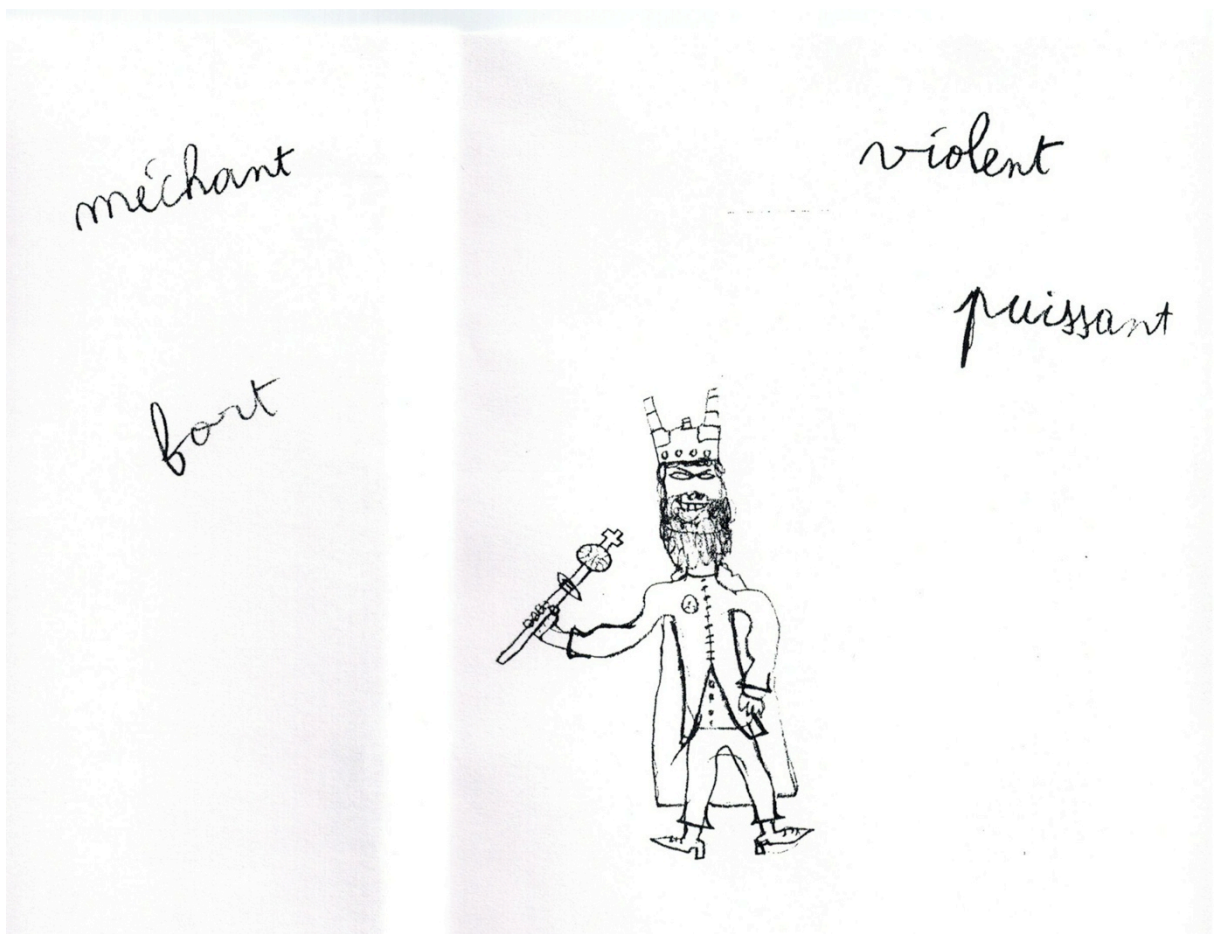 méchant
violent
puissant
fort